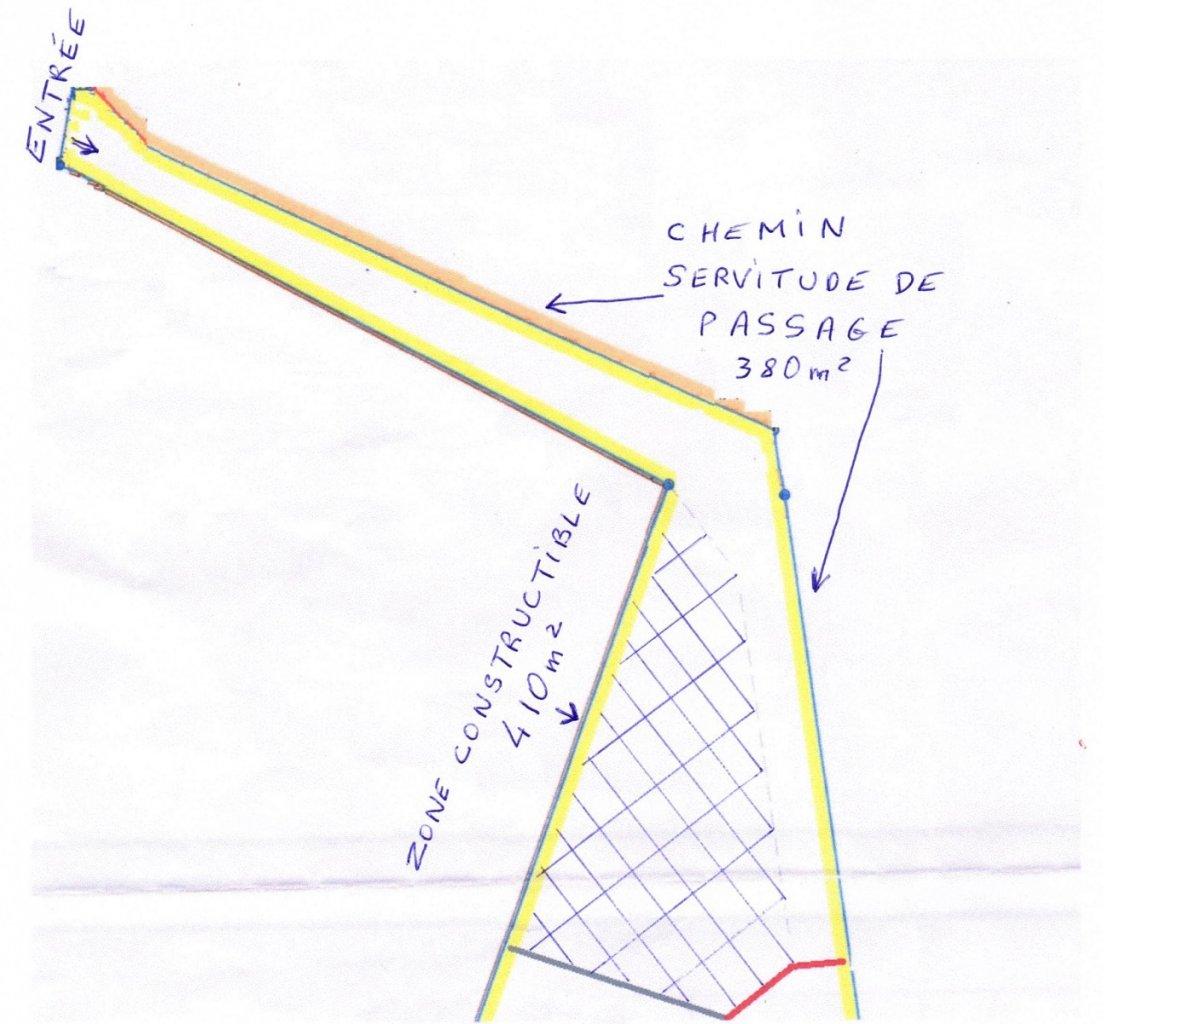 ENTRÉE
CHEMIN
SERVITUDE DE
PASSAGE
380m²
ZONE CONSTRUCTIBLE
410m²